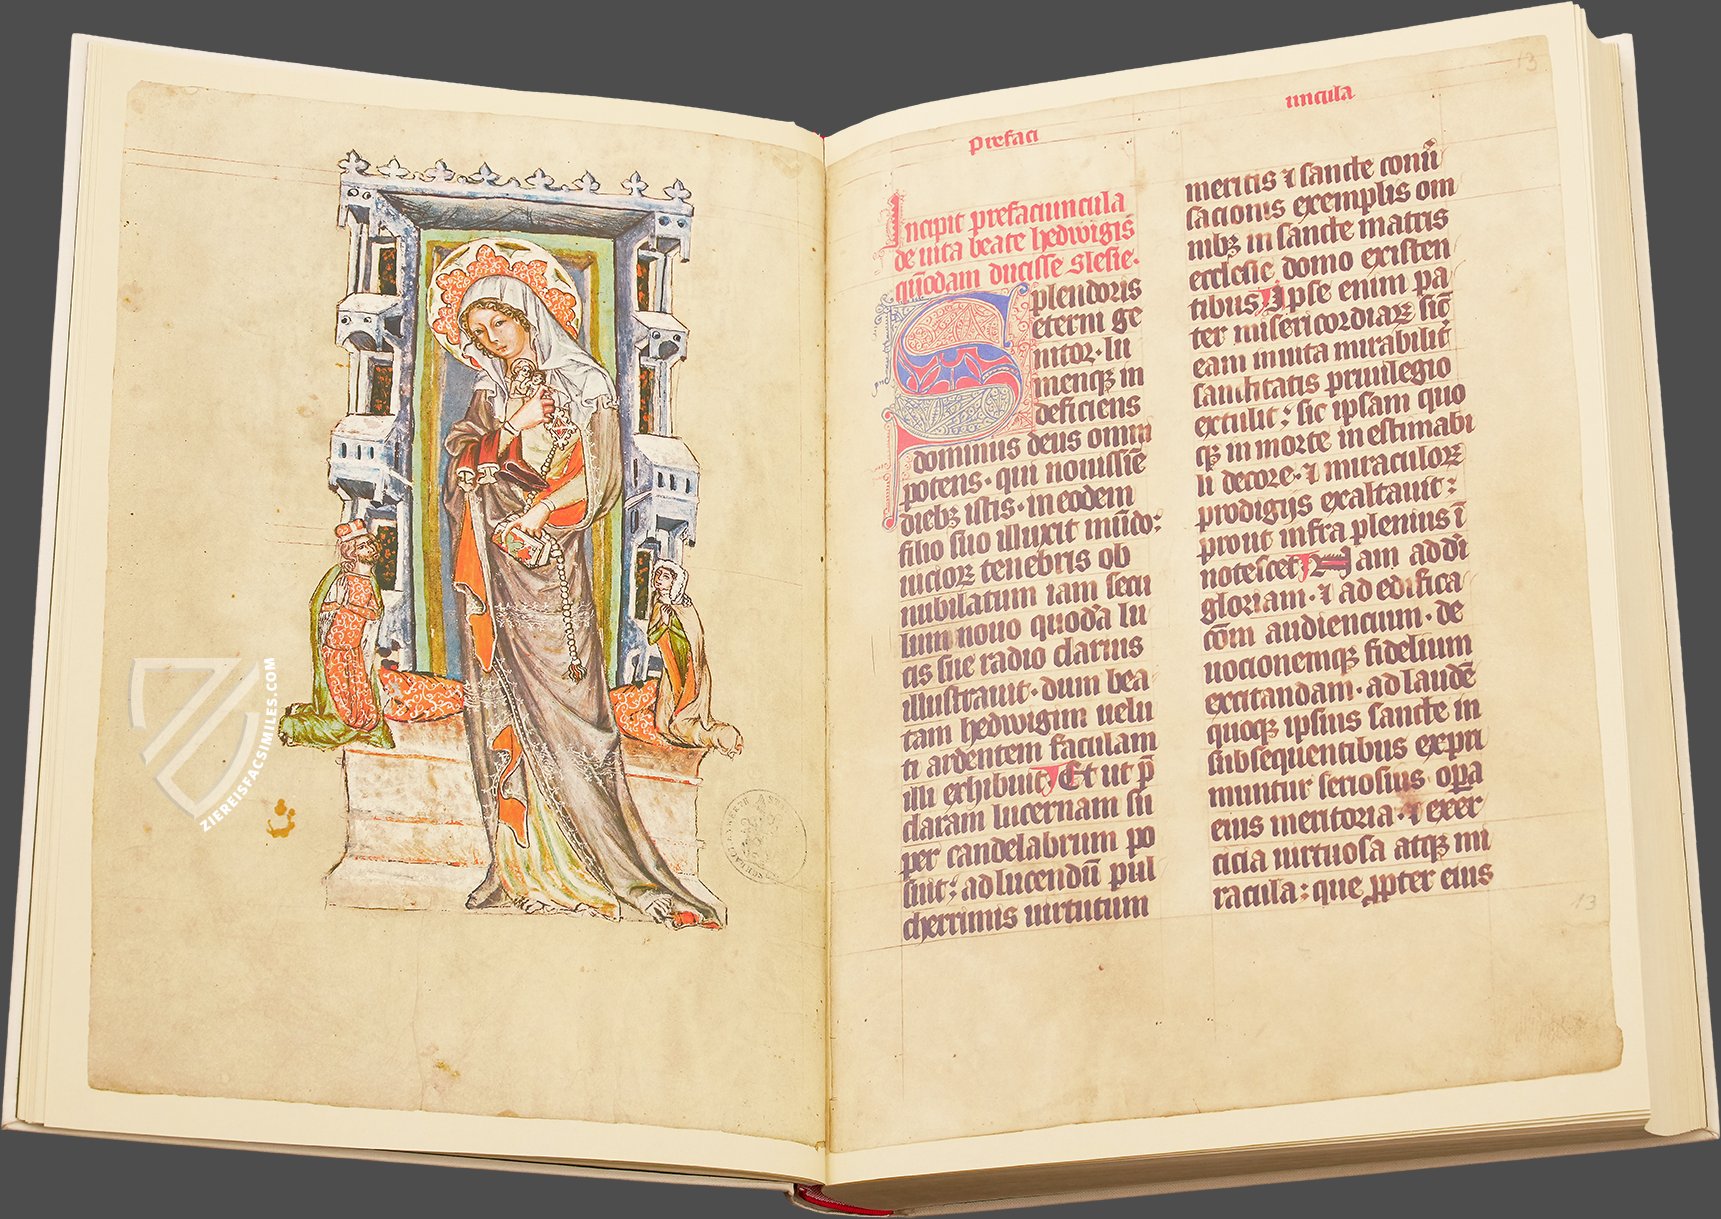 ZIEREISFACSIMILES.COM
prefaci
uncula
13
Incipit prefaciuncula
de uita beate hedwigis
quōdam ducisse slesie.
Splendoris
eterni ge
nitor · lu
menqȝ in
deficiens
dominus deus omni
potens · qui nouissīe
diebȝ istis · in eodem
filio suo illuxit mūdo:
nicioꝝ tenebris ob
nubilatum iam secu
lum nouo quodā lu
cis sue radio clarius
illustrauit · dum bea
tam hedwigim uelu
ti ardentem faculam
illi exhibuit Et ut p̄
claram lucernam su
per candelabrum po
suit: ad lucendū pul
cherrimis uirtutum
meritis ⁊ sancte conuˀ
sacionis exemplis om
nibȝ in sancte matris
ecclesie domo existen
tibus Ipse enim pa
ter misericordiaꝝ sic̄
eam in uita mirabilit̉
sanctitatis priuilegio
extulit: sic ipsam quo
qȝ in morte inestimabi
li decore · ⁊ miraculoꝝ
prodigijs exaltauit:
prout infra plenius ī
notescet Nam ad dī
gloriam · ⁊ ad edifica
cōm audiencium · de
uocionemqȝ fidelium
excitandam · ad laudē
quoqȝ ipsius sancte in
subsequentibus expri
muntur seriosius oꝑa
eius meritoria · ⁊ exer
cicia uirtuosa atqȝ mi
racula: que ꝓpter eius
13